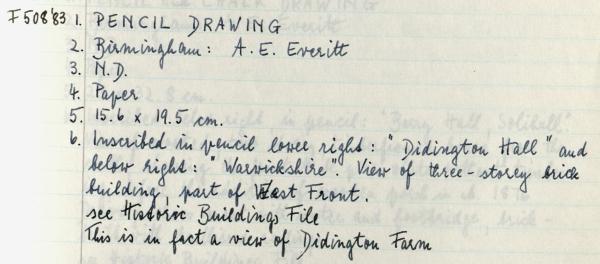 F508'83 1. PENCIL DRAWING
2. Birmingham: A. E. Everitt
3. N.D.
4. Paper
5. 15.6 x 19.5 cm.
6. Inscribed in pencil lower right: "Didington Hall" and
below right: "Warwickshire". View of three-storey brick
building, part of East Front.
see Historic Buildings File
This is in fact a view of Didington Farm